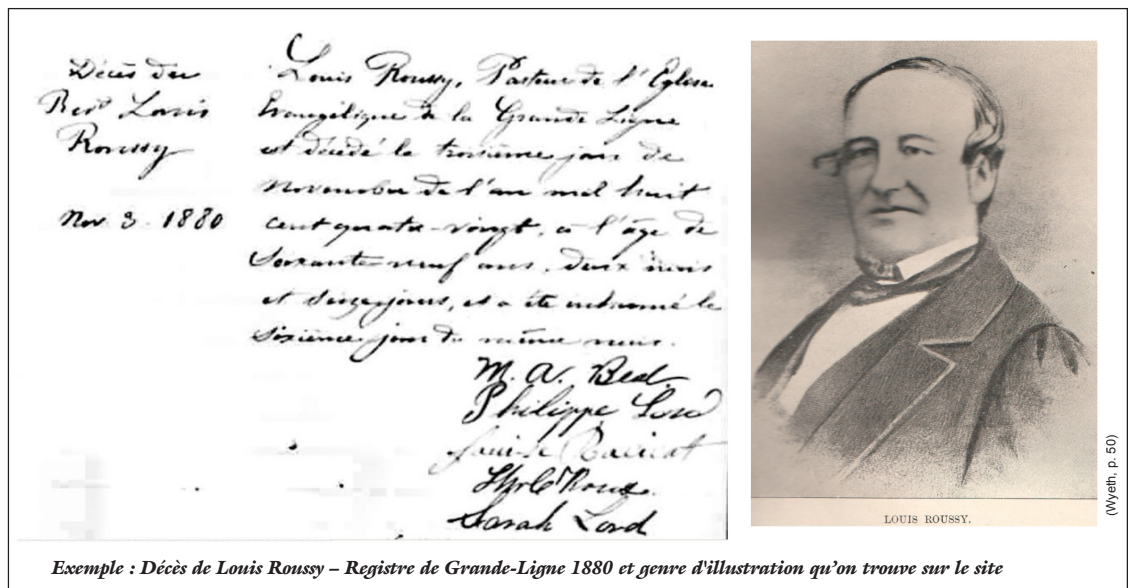 Décès du
Revd Louis
Roussy
Nov. 3 - 1880
Louis Roussy, Pasteur de l'Eglise
Evangélique de la Grande Ligne
est décédé le troisième jour de
novembre de l'an mil huit
cent quatre-vingt, à l'âge de
soixante-neuf ans, deux mois
et seize jours, et a été inhumé le
sixième jour du même mois.
M. A. Best
Philippe Lord
Louise
Sarah Lord
LOUIS ROUSSY.
(Wyeth, p. 50)
Exemple : Décès de Louis Roussy – Registre de Grande-Ligne 1880 et genre d'illustration qu'on trouve sur le site